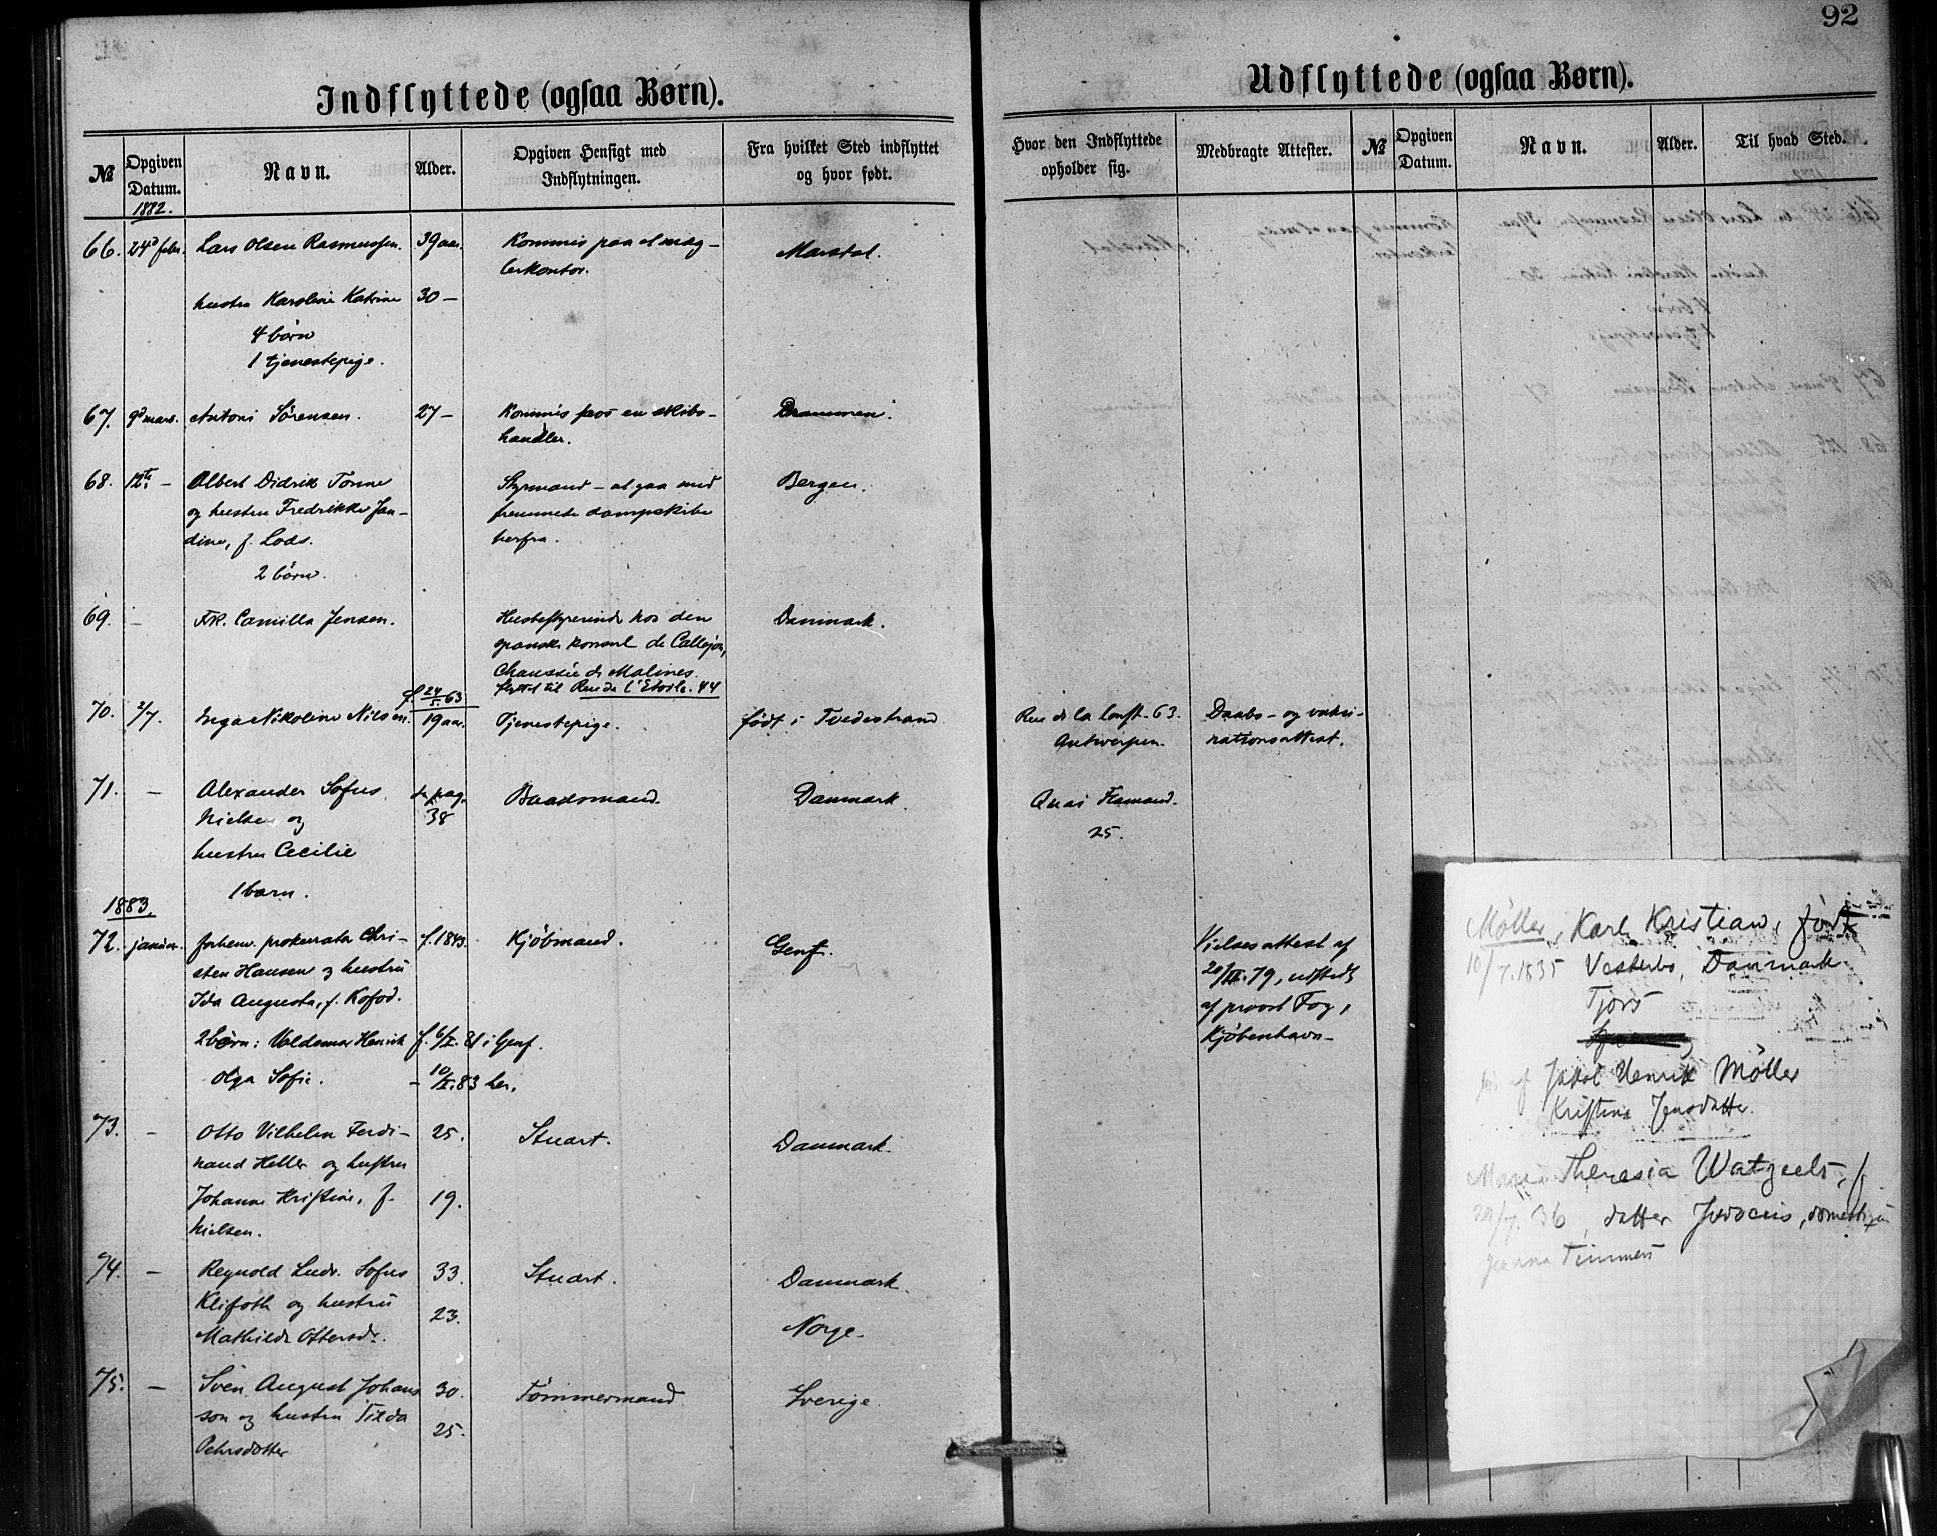 92
Indflyttede (ogsaa Børn).
Udflyttede (ogsaa Børn).
№
Opgiven Datum.
Navn.
Alder.
Opgiven Hensigt med Indflytningen.
Fra hvilket Sted indflyttet og hvor født.
Hvor den Indflyttede opholder sig.
Medbragte Attester.
№
Opgiven Datum.
Navn.
Alder.
Til hvad Sted.
1882.
66. 24d febr. Lars Olsen Rasmussen. 39 aar. Kommis paa et mæg- Marstal.
lerkontor.
hustru Karoline Katrine 30 —
4 børn
1 tjenestepige.
67. 9d mars. Antoni Sörensen. 27 — Kommis hos en skibs- Drammen.
handler.
68. 12te — Albert Didrik Tonne Styrmand — at gaa med Bergen.
og hustru Fredrikke Jan- fremmede dampskibe
dine, f. Lods. herfra.
2 børn.
69. — Frk. Camilla Jensen. Husbestyrerinde hos den Danmark.
spanske konsul de Callejon,
Chaussée de Malines.
flyttet til Rue de l'Etoile. 44
f. 24/5. 63
70. 2/7. Inga Nikoline Nilsen. 19 aar. Tjenestepige. født i Tvedestrand Rue de la Const. 63. Daabs- og vaksi-
Antwerpen. nationsattest.
71. — Alexander Sofus de pag. Baadsmand. Danmark. Quai Flamand.
Nielsen og 38 25.
hustru Cecilie
1 barn.
1883.
72. januar. forhenv. prokurator Chri- f. 1843. Kjöbmand. Genf. Vielsesattest af
sten Hansen og hustru 20/II. 79, udstedt
Ida Augusta, f. Kofod. af provst Fog,
2 børn: Valdemar Henrik f. 6/X. 81 i Genf. Kjöbenhavn —
Olga Sofie. — 10/X. 83 her.
73. — Otto Vilhelm Ferdi- 25. Stuart. Danmark.
nand Heller og hustru
Johanne Kristine, f. 19.
Nielsen.
74. — Reynold Ludv. Sofus 33. Stuart. Danmark.
Klifoth og hustru 23.
Mathilde Ottersdr. Norge.
75. — Sven August Johans 30. Tömmermand Sverige.
son og hustru Tilda 25.
Pehrsdotter
Möller, Karl Kristian, født
10/7. 1835 Vesterbo, Danmark
Tjors
søn af Jakob Henrik Möller
Kristine Jensdatter.
Maria Theresia Watgeels, f.
20/7. 36, datter Judocus,
Joanna Timmers